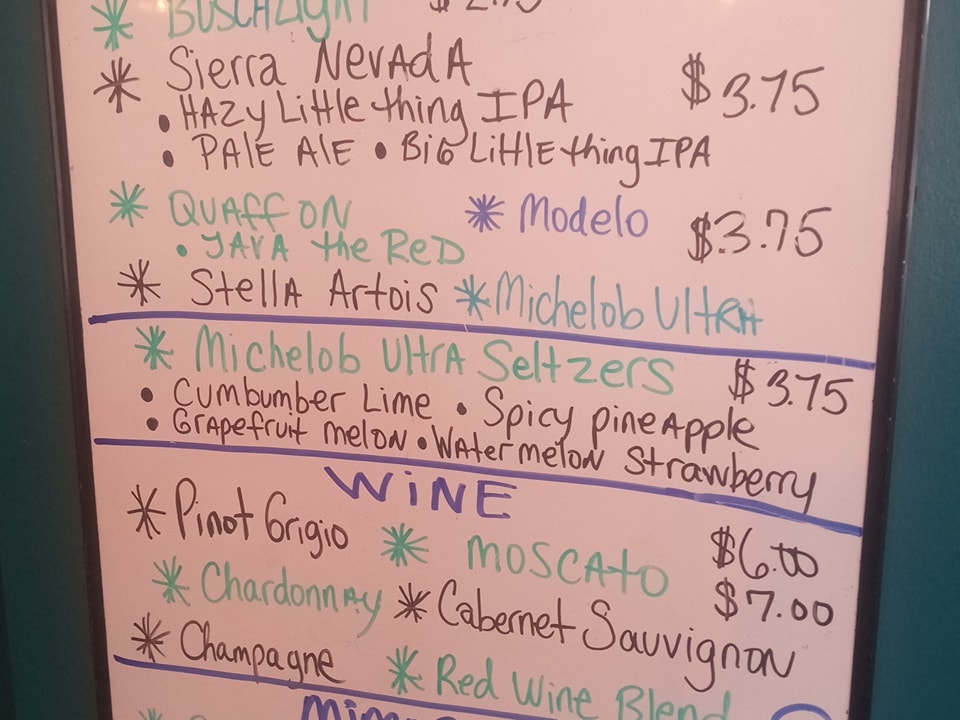 * BUSCH Light
* Sierra NevAdA $3.75
• HAZy Little thing IPA
• PAlE AlE • BiG LittlE thing IPA
* QUAff ON * Modelo $3.75
• JAVA the ReD
* StellA Artois * Michelob UltRA
* Michelob UltrA Seltzers $3.75
• Cumbumber Lime • Spicy pineApple
• GrApefruit melon • WAtermeloN Strawberry
WiNE
* Pinot Grigio * MOSCAto $6.00
* ChardonnAy * Cabernet SauvignoN $7.00
* Champagne * Red Wine Blend